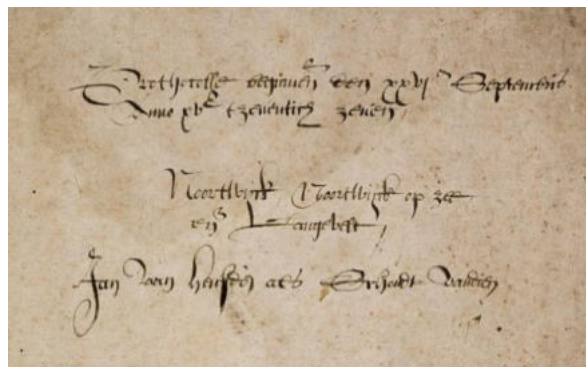 Prothocolle beginnen den xxvi en Septembris
Anno xvc tzeventich zeven
Noortwijck Noortwijck op zee
ende Langevelt
Jan van Heusden als Schoudt vandien